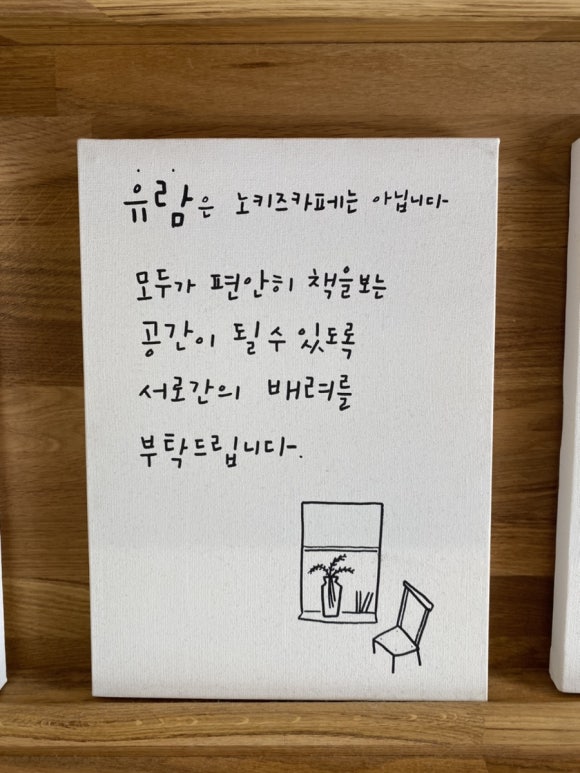 유람은 노키즈카페는 아닙니다
모두가 편안히 책을보는
공간이 될 수 있도록
서로간의 배려를
부탁드립니다.